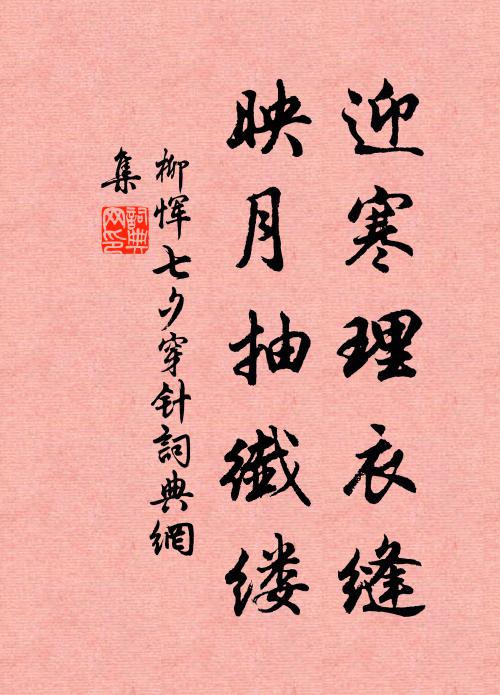 迎寒理衣缝
映月抽纖缕
柳恽七夕穿针詞典網
集
詞典網印